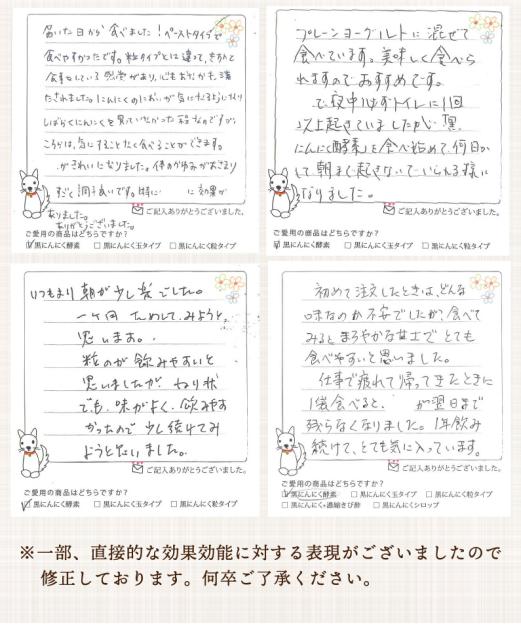 届いた日から食べました!ペーストタイプで
食べやすかったです。粒タイプとは違って、きちんと
食事をしている感覚があり、心もおなかも満
たされました。にんにくのにおいが気になるようになり
しばらくにんにくを買っていなかった程なのですが、
こちらは、気にすることなく食べることができます。
がきれいになりました。体のかゆみがおさまり
すごく調子良いです。特に に効果が
ありました。
ありがとうございました。
ご記入ありがとうございました。
ご愛用の商品はどちらですか?
☑黒にんにく酵素 □黒にんにく玉タイプ □黒にんにく粒タイプ
プレーンヨーグルトに混ぜて
食べています。美味しく食べら
れますのでおすすめです。
で夜中はずトイレに1回
以上起きていましたが「黒
にんにく酵素」を食べ始めて、何日か
して朝まで起きないでいられる様に
なりました。
ご記入ありがとうございました。
ご愛用の商品はどちらですか?
☑黒にんにく酵素 □黒にんにく玉タイプ □黒にんにく粒タイプ
いつもより朝が少し楽でした。
一ヶ月ためしてみようと
思います。
粒のが飲みやすいと
思いましたが ねり状
でも、味がよく、飲みやす
かったので少し続けてみ
ようと思いました。
ご記入ありがとうございました。
ご愛用の商品はどちらですか?
☑黒にんにく酵素 □黒にんにく玉タイプ □黒にんにく粒タイプ
初めて注文したときは、どんな
味なのか不安でしたが、食べて
みると まろやかな甘さで とても
食べやすいと思いました。
仕事で疲れて帰ってきたときに
1袋食べると、 が翌日まで
残らなくなりました。1年飲み
続けて、とても気に入っています。
ご記入ありがとうございました。
ご愛用の商品はどちらですか?
☑黒にんにく酵素 □黒にんにく玉タイプ □黒にんにく粒タイプ
□黒にんにく+濃縮きび酢 □黒にんにくシロップ
※一部、直接的な効果効能に対する表現がございましたので
修正しております。何卒ご了承ください。